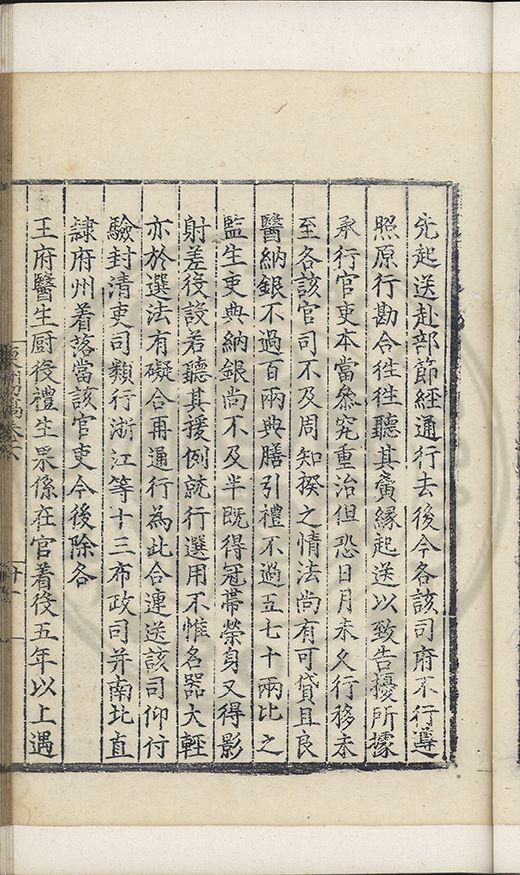 究起送赴部節經通行去後今各該司府不行遵
照原行勘合徃徃聽其夤緣起送以致告擾所據
承行官吏本當叅究重治但恐日月未久行移未
至各該官司不及周知揆之情法尚有可貸且良
醫納銀不過百兩典膳引禮不過五七十兩比之
監生吏典納銀尚不及半既得冠帶榮身又得影
射差役設若聽其援例就行選用不惟名器大輕
亦於選法有礙合再通行為此合連送該司仰付
驗封清吏司類行浙江等十三布政司并南北直
隸府州着落當該官吏今後除各
王府醫生厨役禮生果係在官着役五年以上遇